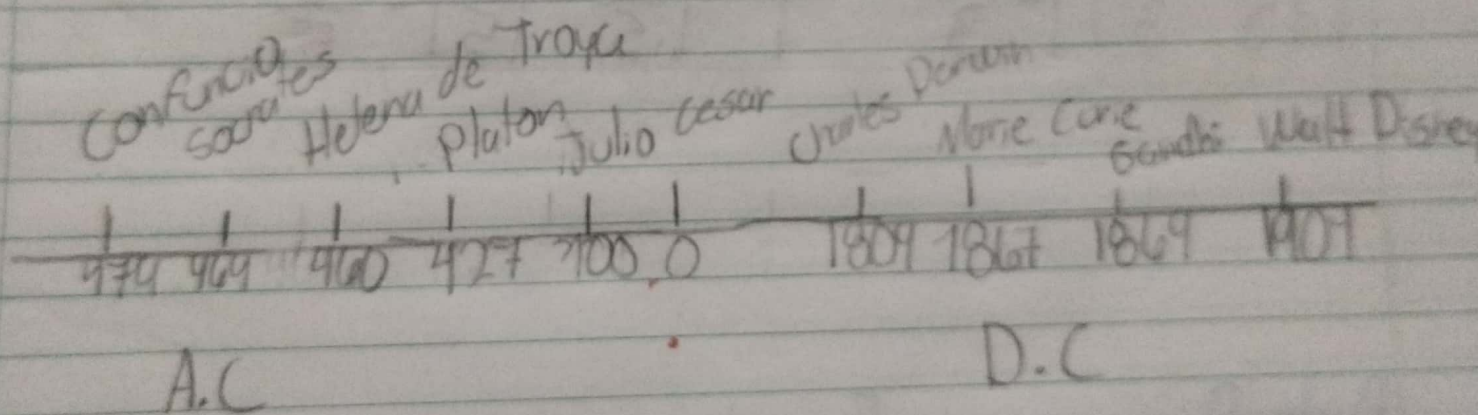 Confucio Socrates Helena de Troya Platon Julio Cesar Charles Darwin Marie Curie Gandhi Walt Disney
474 469 460 427 100 0 1809 1867 1869 1901
A.C D.C